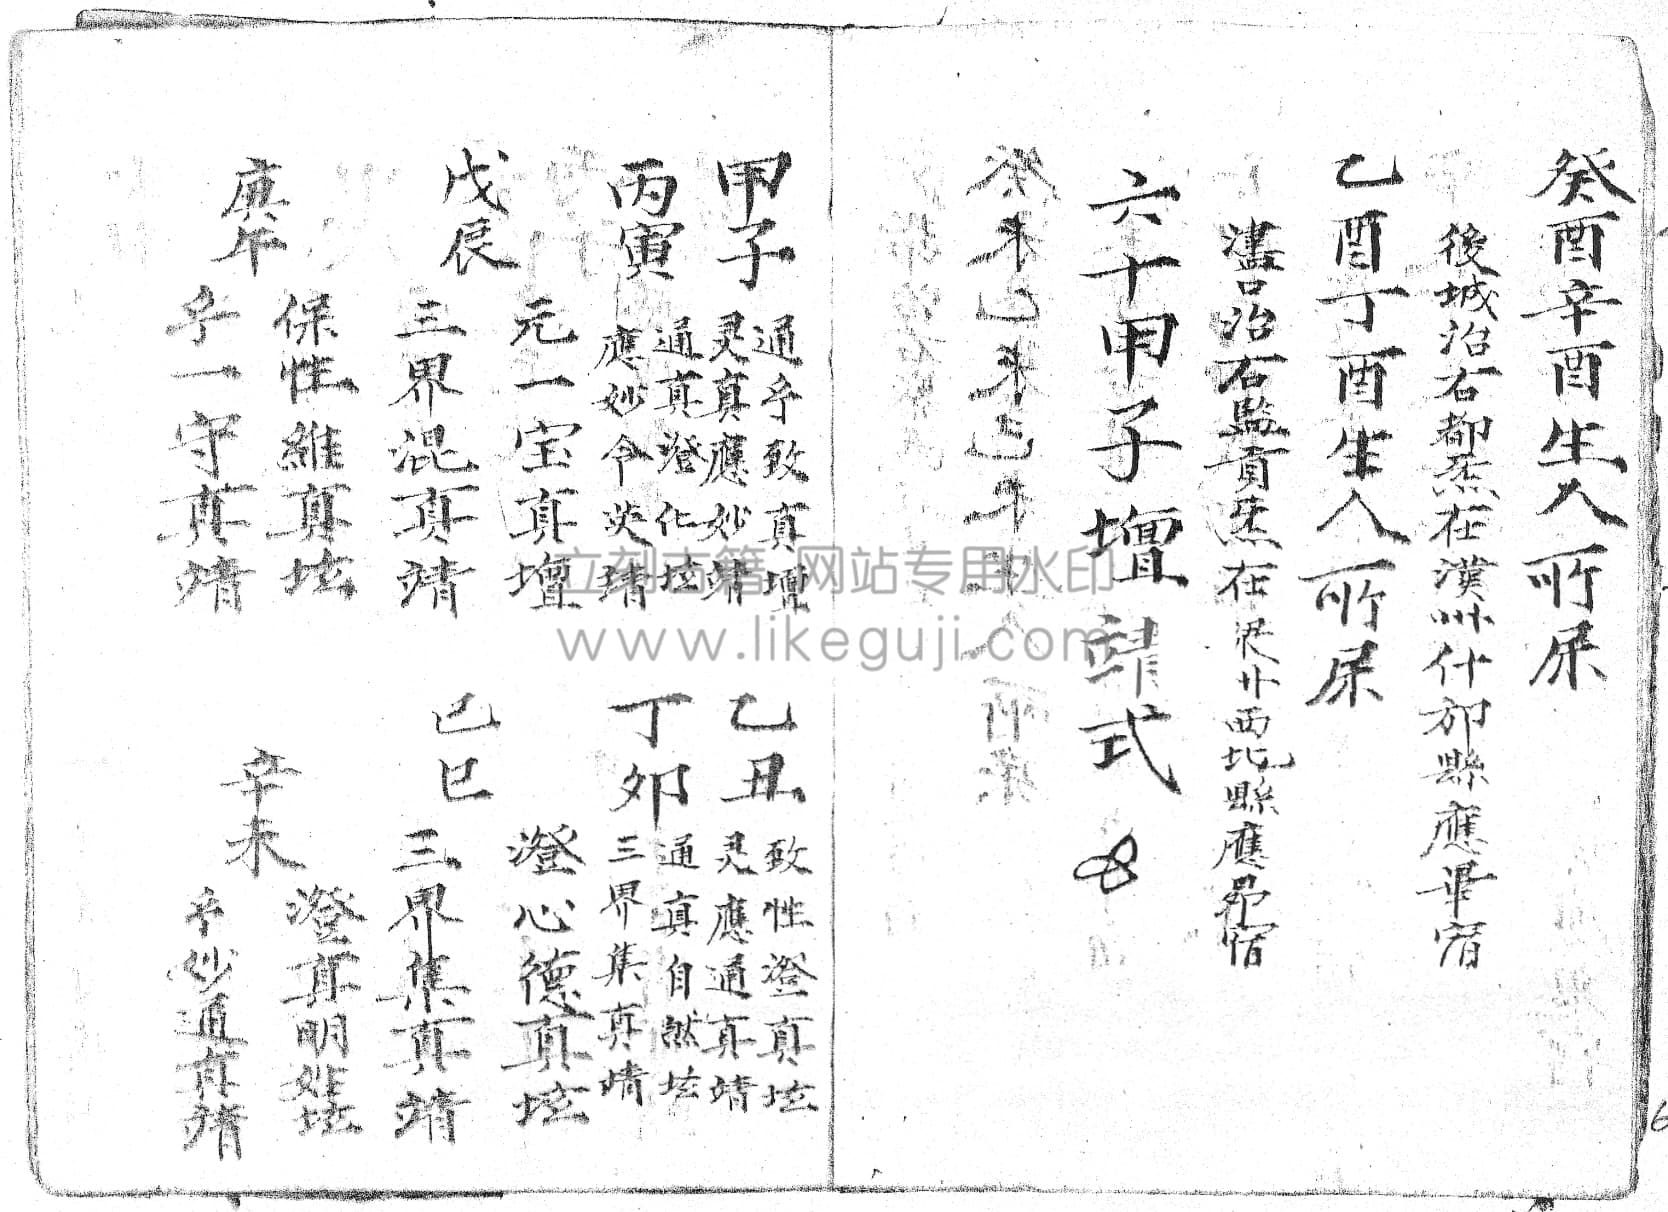 癸酉辛酉生人所屎
後城治右都炁在漢州什邡縣應畢宿
乙酉丁酉生人所屎
濜口治右監貢炁在梁廿西北縣應昴宿
六十甲子壇靖式
甲子 通乎致真壇
灵真應妙靖
乙丑 致性澄真坛
灵應通真靖
丙寅 通真澄化坛
應妙令英靖
丁卯 通真自然坛
三界集真靖
戊辰 元一宝真壇
三界混真靖
己巳 澄心德真坛
三界集真靖
庚午 保性維真坛
乎一守真靖
辛未 澄真明坛
乎妙通真靖
立刻古籍 网站专用水印
www.likeguji.com